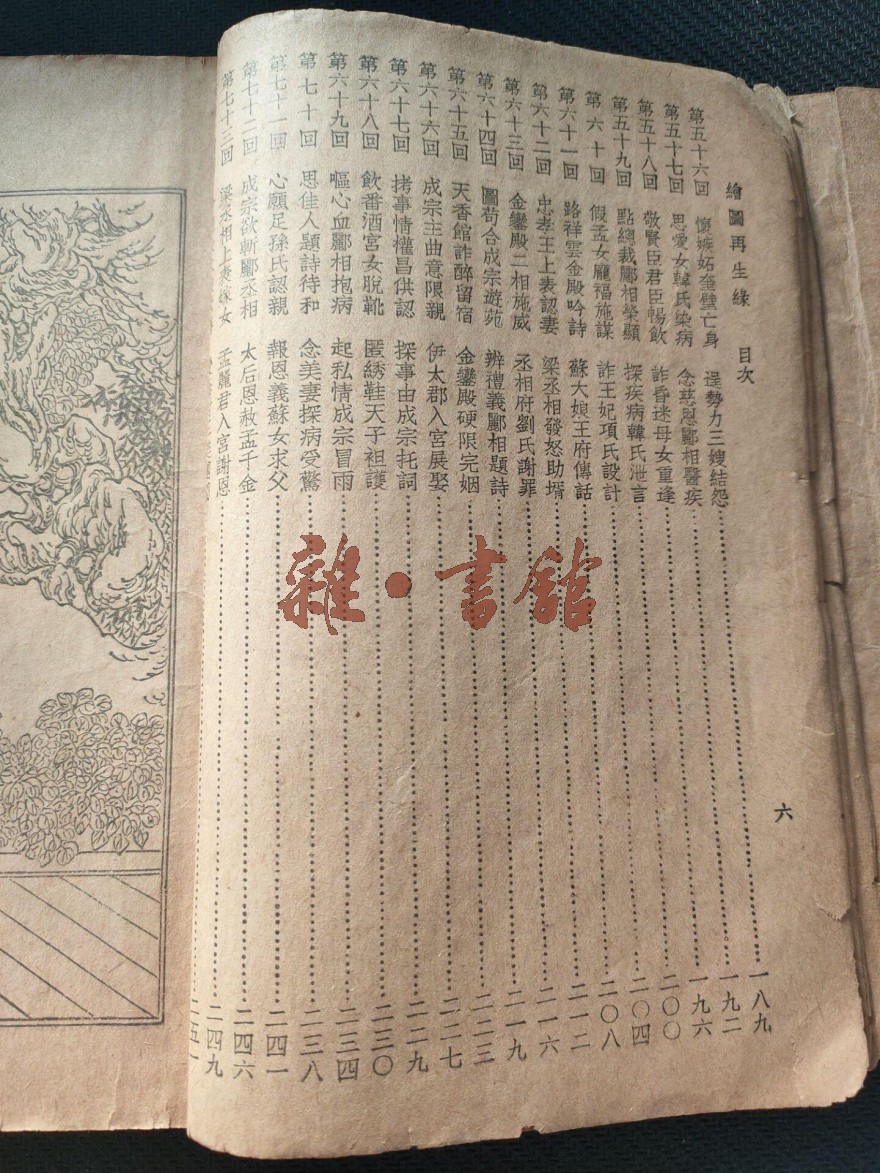 繪圖再生緣　目次　六
第五十六回　懷嫉妬奎璧亡身　逞勢力三嫂結怨……一八九
第五十七回　思愛女韓氏染病　念慈恩酈相醫疾……一九二
第五十八回　敬賢臣君臣暢飲　詐昏迷母女重逢……一九六
第五十九回　點總裁酈相榮顯　探疾病韓氏泄言……二〇〇
第六十回　假孟女龐福施謀　詐王妃項氏設計……二〇四
第六十一回　路祥雲金殿吟詩　蘇大娘王府傳話……二〇八
第六十二回　忠孝王上表認妻　梁丞相發怒助壻……二一二
第六十三回　金鑾殿二相施威　丞相府劉氏謝罪……二一六
第六十四回　圖苟合成宗遊苑　辨禮義酈相題詩……二一九
第六十五回　天香館詐醉留宿　金鑾殿硬限完姻……二二三
第六十六回　成宗主曲意限親　伊太郡入宮展娶……二二七
第六十七回　拷事情權昌供認　探事由成宗托詞……二二九
第六十八回　飲番酒宮女脫靴　匿綉鞋天子袒護……二三〇
第六十九回　嘔心血酈相抱病　起私情成宗冒雨……二三四
第七十回　思佳人題詩待和　念美妻探病受驚……二三八
第七十一回　心願足孫氏認親　報恩義蘇女求父……二四一
第七十二回　成宗欲斬酈丞相　太后恩赦孟千金……二四六
第七十三回　梁丞相上表嫁女　孟麗君入宮謝恩……二四九
二五一
雜·書館